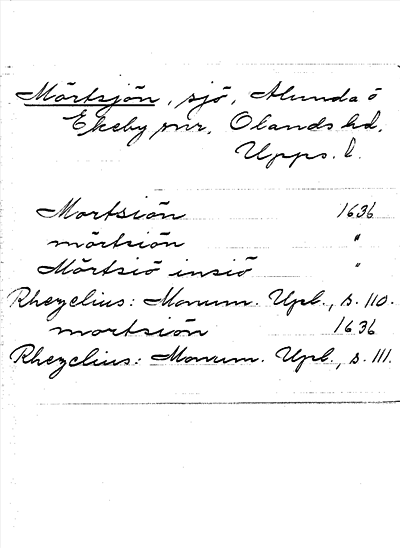 Mörtsjön, sjö, Alunda o
Ekeby snr, Olands hd.
Upps. l.
Mortsiön 1636
mörtsiön "
Mörtsiö insiö "
Rhezelius: Monum. Upl., s. 110.
mortsiön 1636
Rhezelius: Monum. Upl., s. 111.